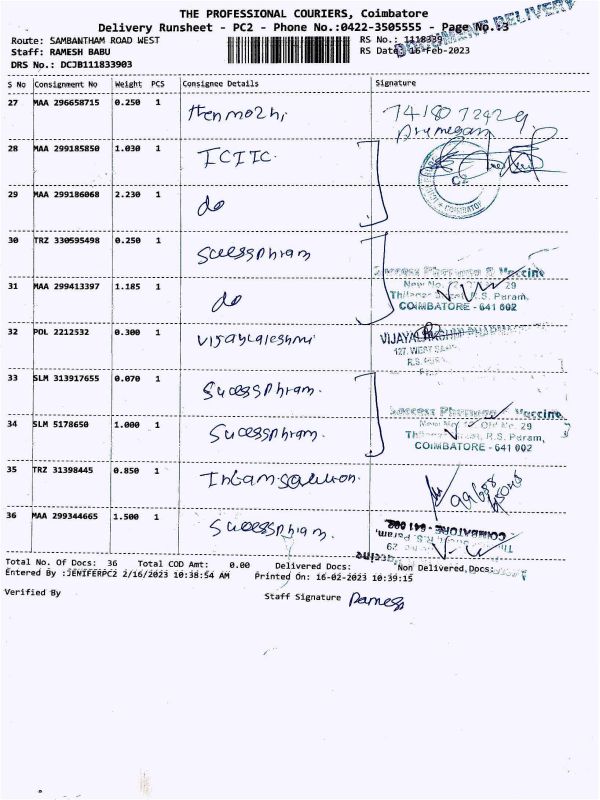 THE PROFESSIONAL COURIERS, Coimbatore
Delivery Runsheet - PC2 - Phone No.:0422-3505555 - Page No.:3
DOCUMENT DELIVERY
Route: SAMBANTHAM ROAD WEST
RS No.: 1118339
Staff: RAMESH BABU
RS Date: 16-Feb-2023
DRS No.: DCJB111833903
S No Consignment No Weight PCS Consignee Details Signature
27 MAA 296658715 0.250 1 thenmozhi
Arumugam
28 MAA 299185850 1.030 1 ICIIC.
COIMBATOR
29 MAA 299186068 2.230 1 do
30 TRZ 330595498 0.250 1 sucessphram
31 MAA 299413397 1.185 1 do
Success Pharma & Vaccine
New No. 29
R.S. Puram,
COIMBATORE - 641 002
32 POL 2212532 0.300 1 vijaylaleshmi
127, WEST
R.S.
33 SLM 313917655 0.070 1 Sucessphram.
34 SLM 5178650 1.000 1 Sucessphram.
Success Vaccine
New No. Old No. 29
R.S. Puram,
COIMBATORE - 641 002
35 TRZ 31398445 0.850 1
36 MAA 299344665 1.500 1 Sucessphram.
COIMBATORE - 641 002
R.S. Puram,
29
Vaccine
Total No. Of Docs: 36 Total COD Amt: 0.00 Delivered Docs: Non Delivered Docs:
Entered By :JENIFERPC2 2/16/2023 10:38:54 AM Printed On: 16-02-2023 10:39:15
Verified By
Staff Signature Ramesh